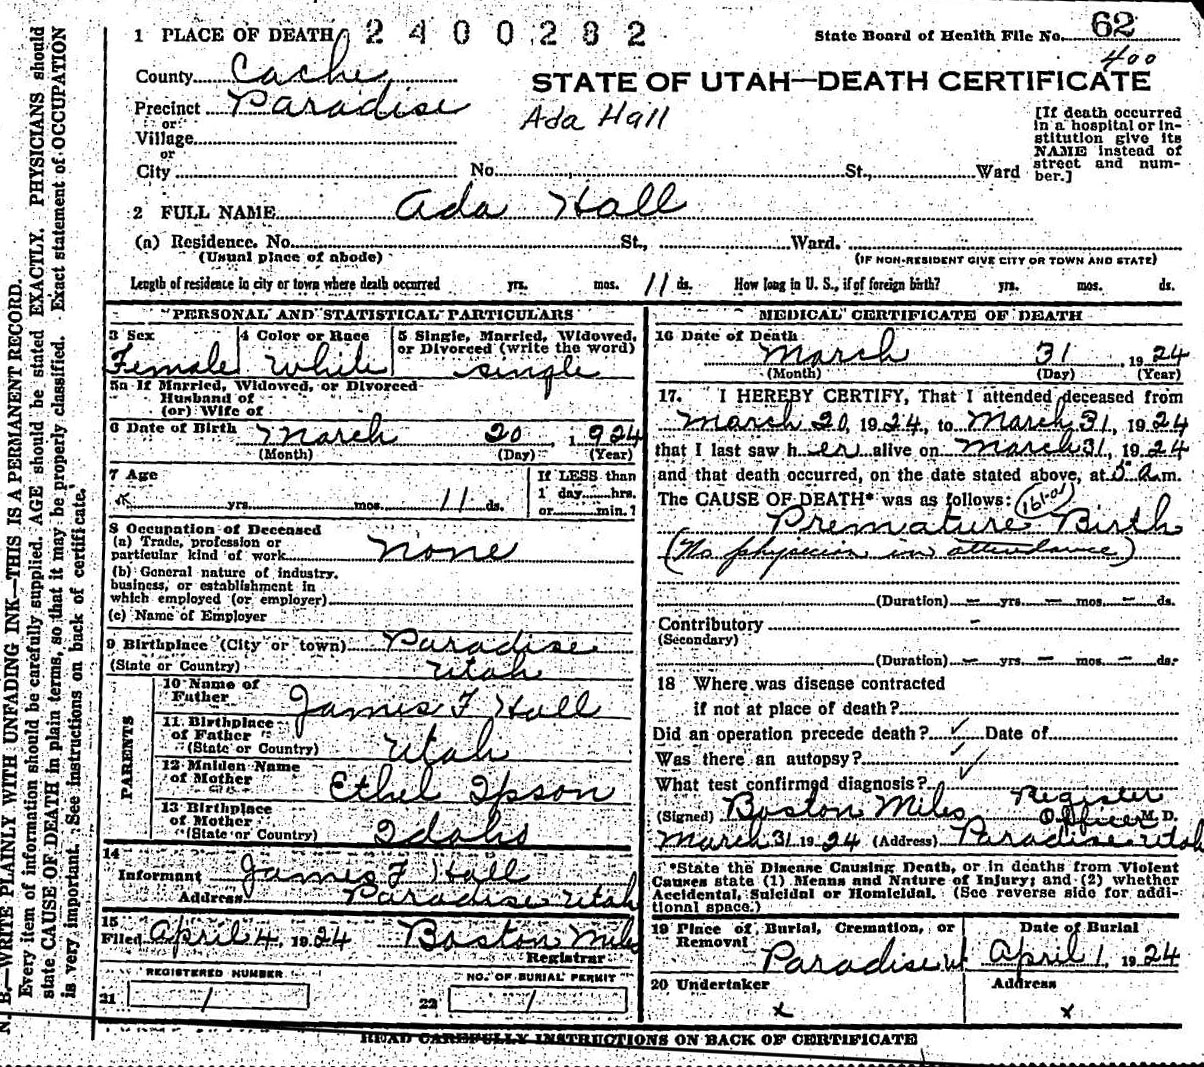 1 PLACE OF DEATH 2400282
State Board of Health File No. 62
400
County Cache
STATE OF UTAH—DEATH CERTIFICATE
Precinct Paradise
Ada Hall
or
Village
or
City No. St., Ward
[If death occurred
in a hospital or in-
stitution give its
NAME instead of
street and num-
ber.]
2 FULL NAME Ada Hall
(a) Residence. No. St., Ward.
(Usual place of abode) (IF NON-RESIDENT GIVE CITY OR TOWN AND STATE)
Length of residence in city or town where death occurred yrs. mos. 11 ds. How long in U. S., if of foreign birth? yrs. mos. ds.
PERSONAL AND STATISTICAL PARTICULARS
3 Sex
Female
4 Color or Race
White
5 Single, Married, Widowed,
or Divorced (write the word)
single
5a If Married, Widowed, or Divorced
Husband of
(or) Wife of
6 Date of Birth March 20, 1924
(Month) (Day) (Year)
7 Age
yrs. mos. 11 ds.
If LESS than
1 day hrs.
or min.?
8 Occupation of Deceased
(a) Trade, profession or
particular kind of work none
(b) General nature of industry,
business, or establishment in
which employed (or employer)
(c) Name of Employer
9 Birthplace (City or town) Paradise
(State or Country) Utah
PARENTS
10 Name of
Father James F Hall
11 Birthplace
of Father
(State or Country) Utah
12 Maiden Name
of Mother Ethel Ipson
13 Birthplace
of Mother
(State or Country) Idaho
14
Informant James F Hall
Address Paradise Utah
15
Filed April 4, 1924 Boston Miles
Registrar
REGISTERED NUMBER
21 1
NO. OF BURIAL PERMIT
22 1
MEDICAL CERTIFICATE OF DEATH
16 Date of Death
March 31 1924
(Month) (Day) (Year)
17. I HEREBY CERTIFY, That I attended deceased from
March 20, 1924, to March 31, 1924
that I last saw her alive on March 31, 1924
and that death occurred, on the date stated above, at 5 a.m.
The CAUSE OF DEATH* was as follows: 161-01
Premature Birth
(No physician in attendance)
(Duration) — yrs. — mos. — ds.
Contributory -
(Secondary)
(Duration) — yrs. — mos. — ds.
18 Where was disease contracted
if not at place of death?
Did an operation precede death? ✓ Date of
Was there an autopsy? ✓
What test confirmed diagnosis? ✓
(Signed) Boston Miles Register Officer M. D.
March 31 1924 (Address) Paradise Utah
*State the Disease Causing Death, or in deaths from Violent
Causes state (1) Means and Nature of Injury; and (2) whether
Accidental, Suicidal or Homicidal. (See reverse side for addi-
tional space.)
19 Place of Burial, Cremation, or
Removal
Paradise Ut
Date of Burial
April 1, 1924
20 Undertaker
x
Address
x
READ CAREFULLY INSTRUCTIONS ON BACK OF CERTIFICATE
N. B.—WRITE PLAINLY WITH UNFADING INK—THIS IS A PERMANENT RECORD.
Every item of information should be carefully supplied. AGE should be stated EXACTLY. PHYSICIANS should
state CAUSE OF DEATH in plain terms, so that it may be properly classified. Exact statement of OCCUPATION
is very important. See instructions on back of certificate.